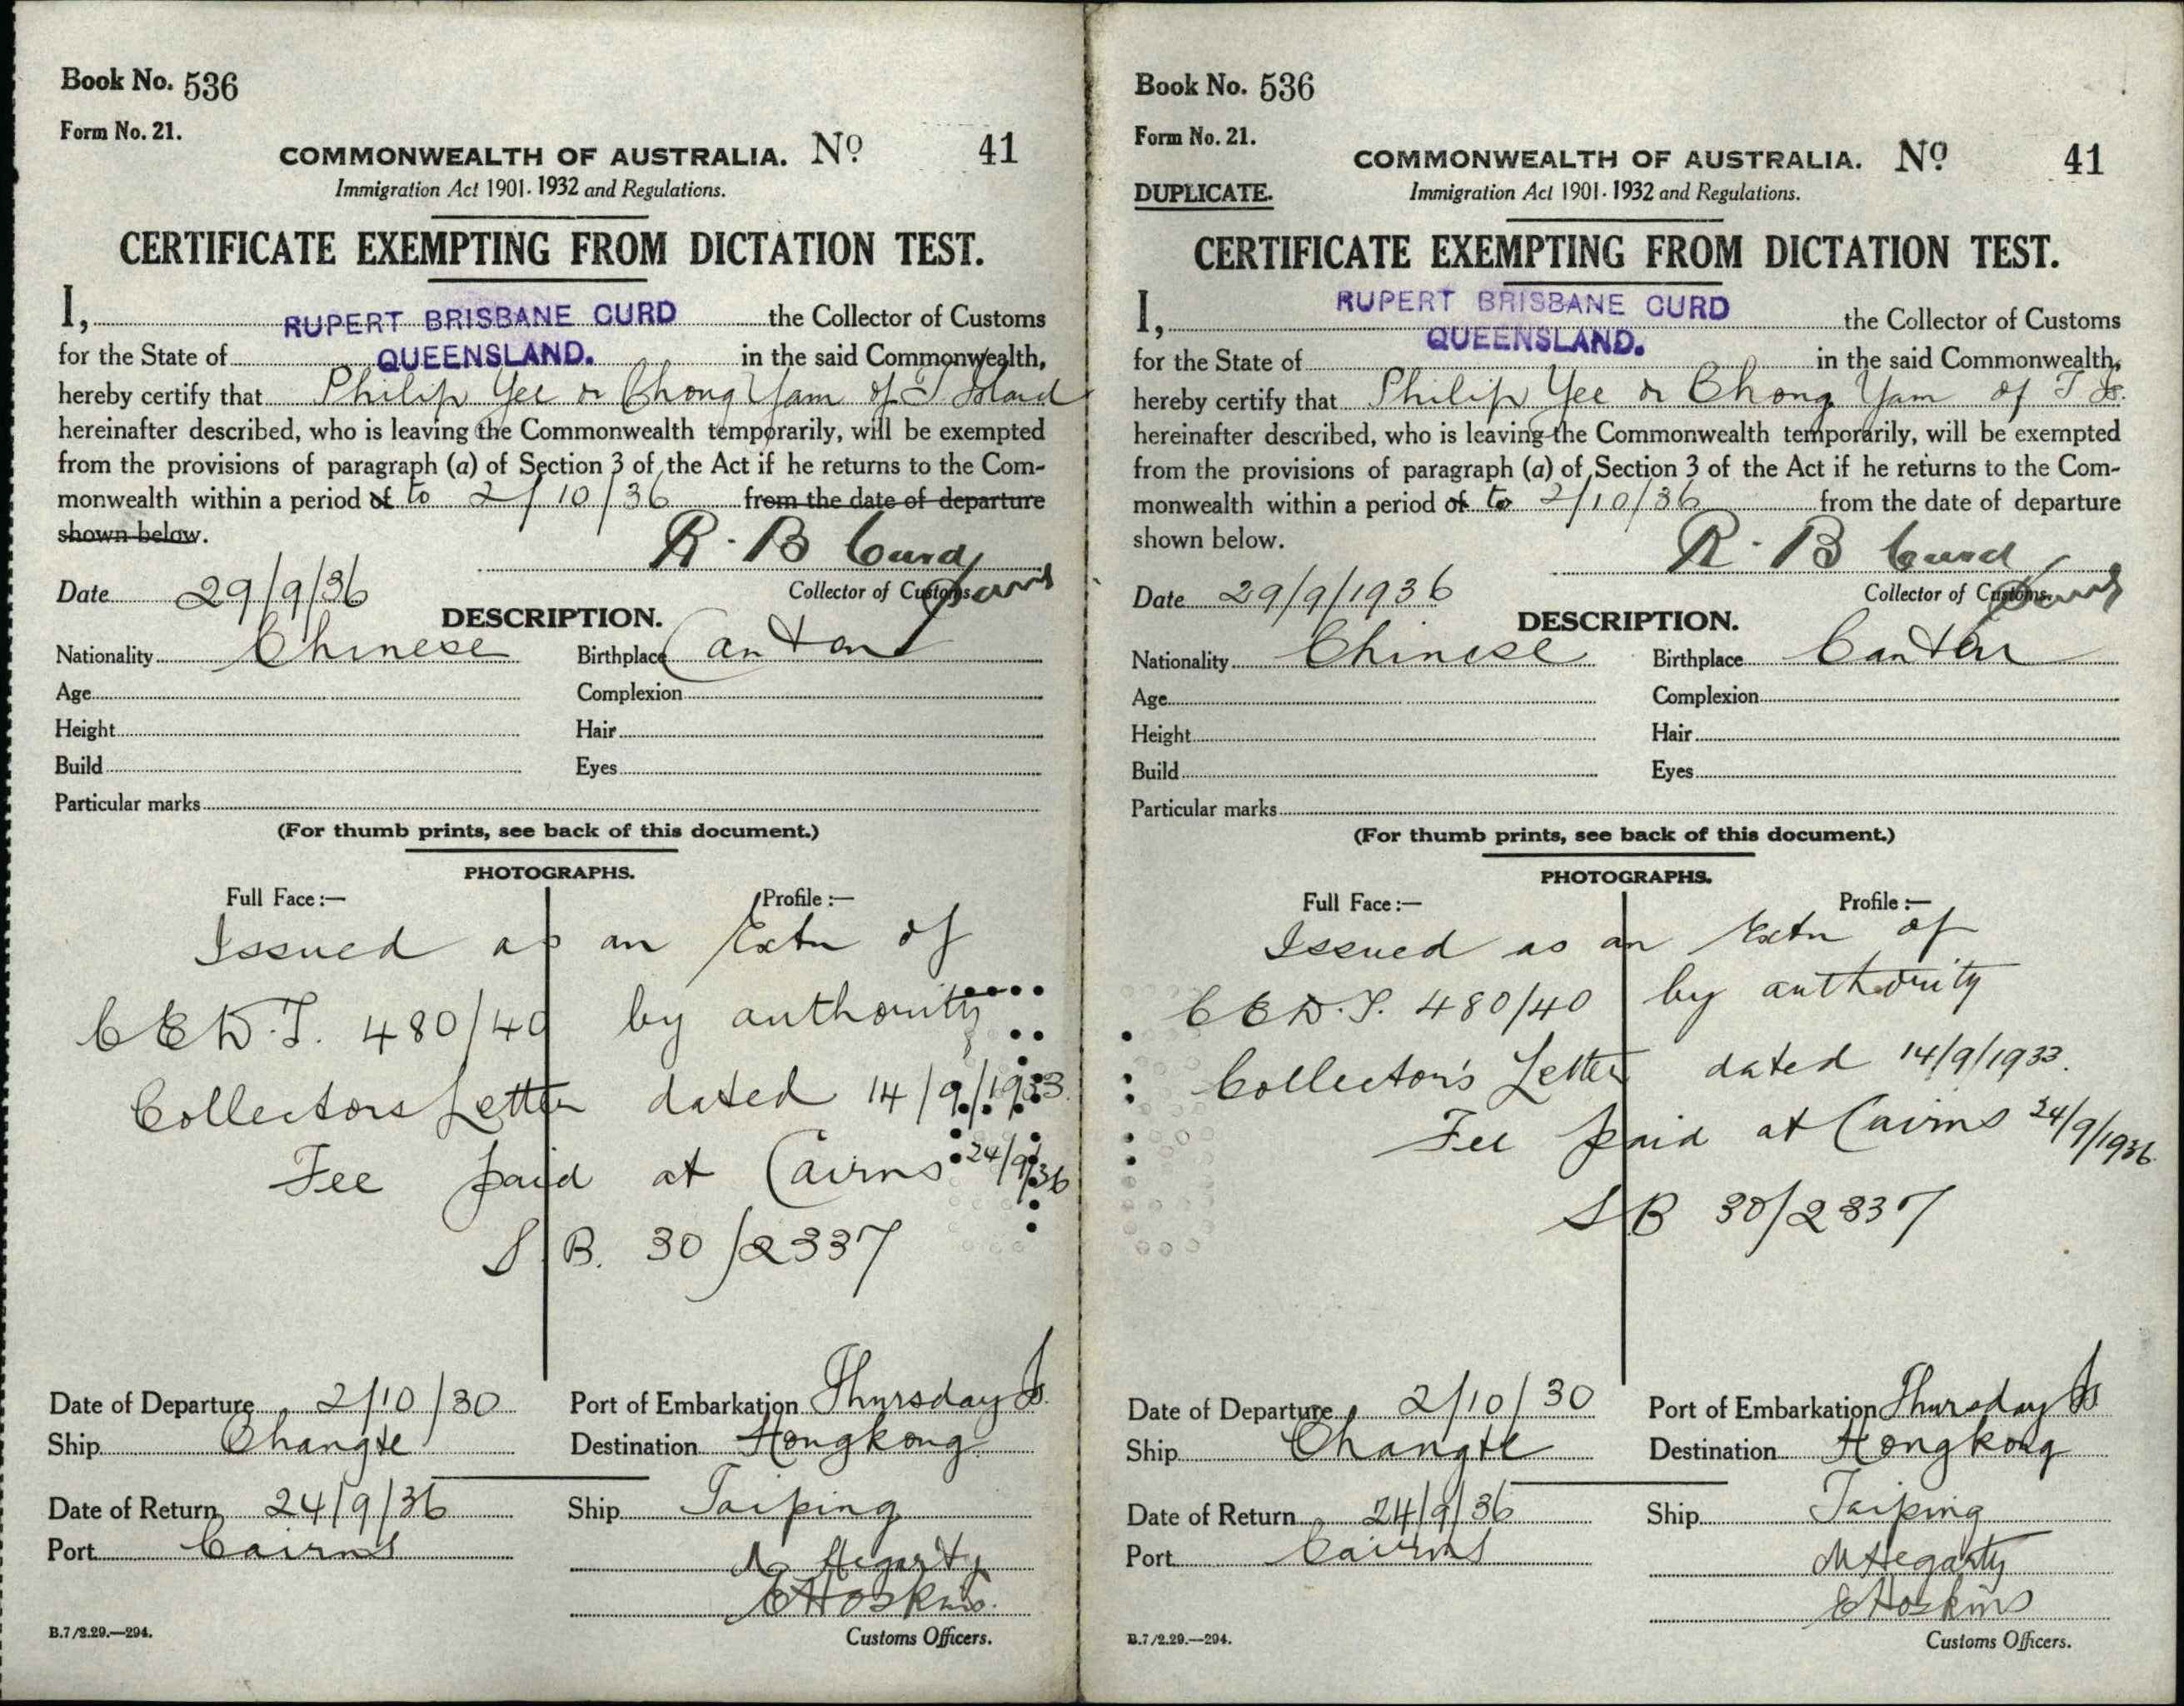 Book No. 536
Form No. 21.
COMMONWEALTH OF AUSTRALIA. No 41
Immigration Act 1901-1932 and Regulations.
CERTIFICATE EXEMPTING FROM DICTATION TEST.
I, RUPERT BRISBANE CURD the Collector of Customs
for the State of QUEENSLAND. in the said Commonwealth,
hereby certify that Philip Yee or Chong Yam of T Island
hereinafter described, who is leaving the Commonwealth temporarily, will be exempted
from the provisions of paragraph (a) of Section 3 of the Act if he returns to the Com-
monwealth within a period of to 2/10/36 from the date of departure
shown below.
R. B Curd
Date 29/9/36 Collector of Customs.
DESCRIPTION.
Nationality Chinese Birthplace Canton
Age Complexion
Height Hair
Build Eyes
Particular marks
(For thumb prints, see back of this document.)
PHOTOGRAPHS.
Full Face:— Profile:—
Issued as an Extn of
C.E.D.T. 480/40 by authority
Collectors Letter dated 14/9/1933.
Fee paid at Cairns 24/9/36
S.B. 30/2337
Date of Departure 2/10/30 Port of Embarkation Thursday Is.
Ship Changte Destination Hongkong
Date of Return 24/9/36 Ship Taiping
Port Cairns
M Hegarty
E Hoskins.
B.7/2.29.—294. Customs Officers.
Book No. 536
Form No. 21.
COMMONWEALTH OF AUSTRALIA. No 41
DUPLICATE. Immigration Act 1901-1932 and Regulations.
CERTIFICATE EXEMPTING FROM DICTATION TEST.
I, RUPERT BRISBANE CURD the Collector of Customs
for the State of QUEENSLAND. in the said Commonwealth,
hereby certify that Philip Yee or Chong Yam of T Is.
hereinafter described, who is leaving the Commonwealth temporarily, will be exempted
from the provisions of paragraph (a) of Section 3 of the Act if he returns to the Com-
monwealth within a period of to 2/10/36 from the date of departure
shown below.
R. B Curd
Date 29/9/1936 Collector of Customs.
DESCRIPTION.
Nationality Chinese Birthplace Canton
Age Complexion
Height Hair
Build Eyes
Particular marks
(For thumb prints, see back of this document.)
PHOTOGRAPHS.
Full Face:— Profile:—
Issued as an Extn of
C.E.D.T. 480/40 by authority
Collector's Letter dated 14/9/1933.
Fee paid at Cairns 24/9/1936
S.B 30/2337
Date of Departure 2/10/30 Port of Embarkation Thursday Is
Ship Changte Destination Hongkong
Date of Return 24/9/36 Ship Taiping
Port Cairns
M Hegarty
E Hoskins
B.7/2.29.—294. Customs Officers.